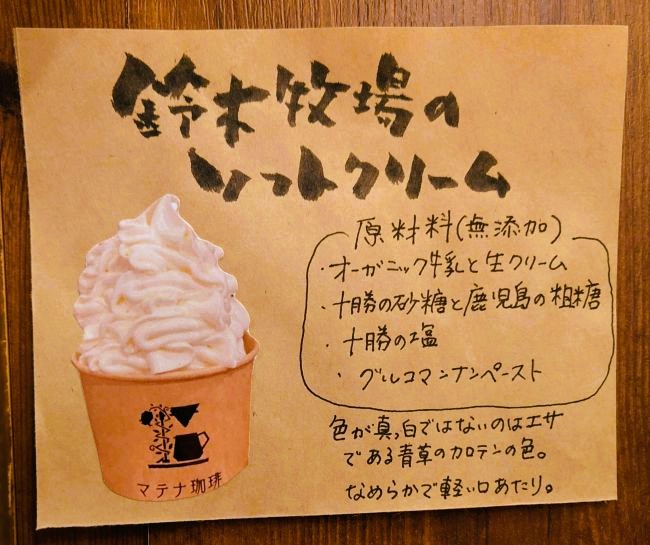 鈴木牧場の
ソフトクリーム
原材料(無添加)
・オーガニック牛乳と生クリーム
・十勝の砂糖と鹿児島の粗糖
・十勝の塩
・グルコマンナンペースト
色が真っ白ではないのはエサ
である青草のカロテンの色。
なめらかで軽い口あたり。
マテナ珈琲